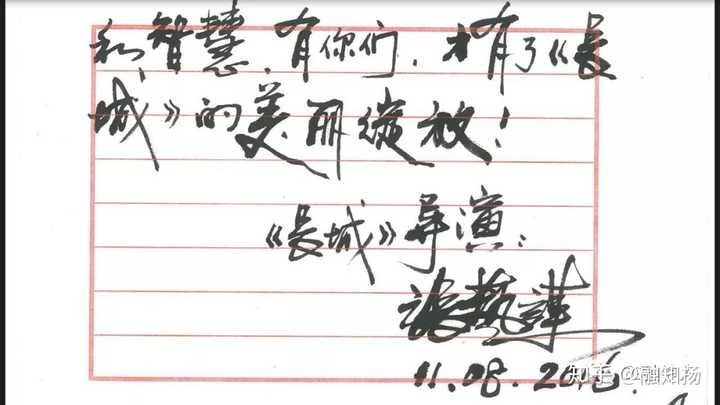 和智慧,有你们,才有了《长
城》的美丽绽放!
《长城》导演:
张艺谋
11.08.2016
知乎 @融知扬